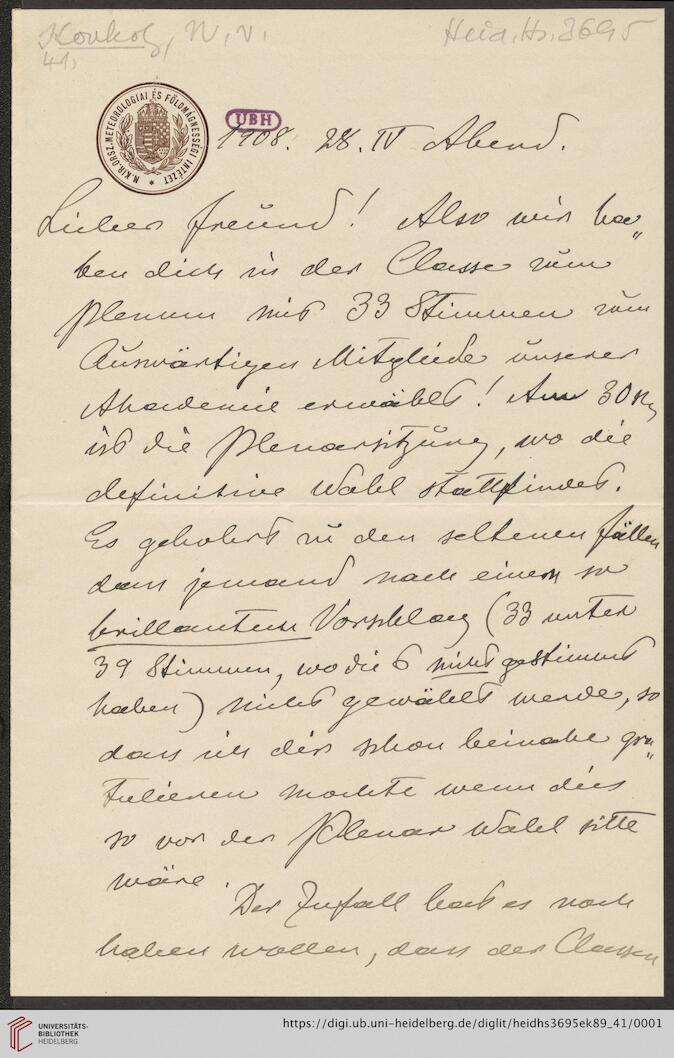 Konkoly, N. v.
Heid. Hs. 3695
41,
M. KIR. ORSZ. METEOROLOGIAI ÉS FÖLDMÁGNESSÉGI INTÉZET
UBH
1908. 28. IV Abend.
Lieber Freund! Also wir ha„
ben dich in der Classe zum
Plenum mit 33 Stimmen zum
Auswärtigen Mitgliede unserer
Akademie erwählt! Am 30
ist die Plenarsitzung, wo die
definitive Wahl stattfindet.
Es gehohrt zu den seltenen fällen
dass jemand nach einem so
brillantem Vorschlag (33 unter
39 Stimmen, wo die 6 nicht gestimmt
haben) nicht gewählt werde, so
dass ich dir schon beinahe gra„
tulieren mochte wenn dies
so vor der Plenar Wahl sitte
wäre.
Der Zufall hat es noch
haben wollen, dass der Classen
UNIVERSITÄTS-
BIBLIOTHEK
HEIDELBERG
https://digi.ub.uni-heidelberg.de/diglit/heidhs3695ek89_41/0001